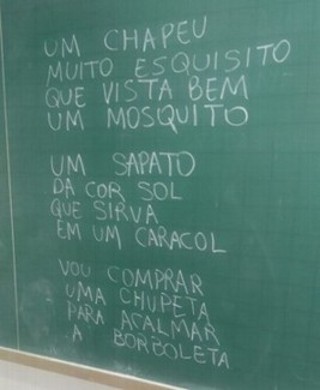 UM CHAPEU
MUITO ESQUISITO
QUE VISTA BEM
UM MOSQUITO
UM SAPATO
DA COR SOL
QUE SIRVA
EM UM CARACOL
VOU COMPRAR
UMA CHUPETA
PARA ACALMAR
A BORBOLETA